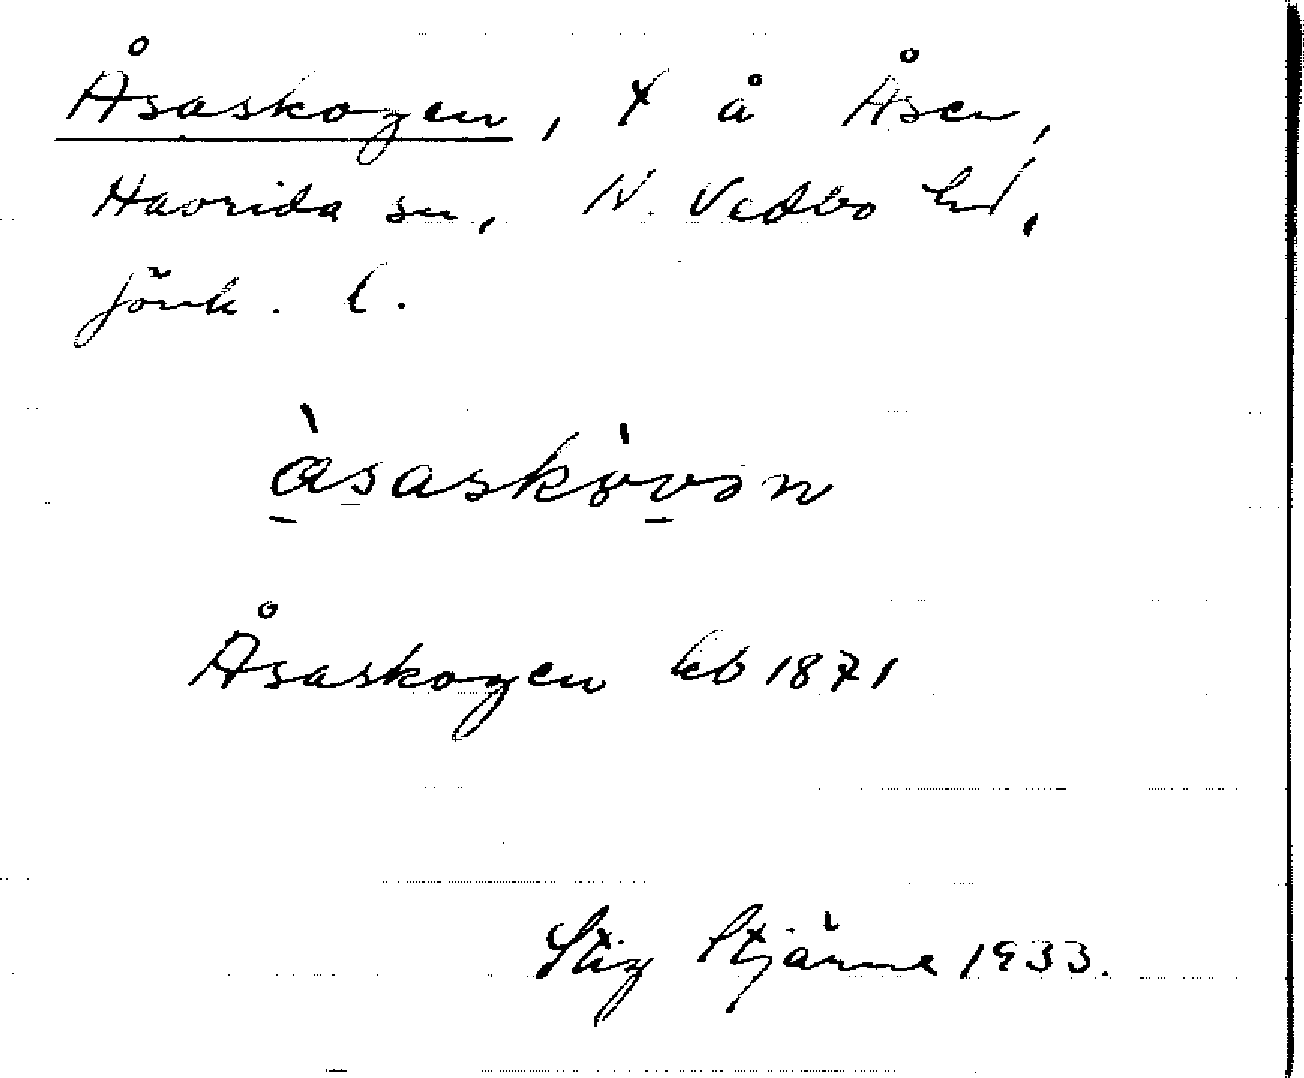 Åsaskogen, x å Åsen,
Haurida sn, N. Vedbo hd,
Jönk. l.
àsaskòvən
Åsaskogen kb 1871
Stig Stjärne 1933.